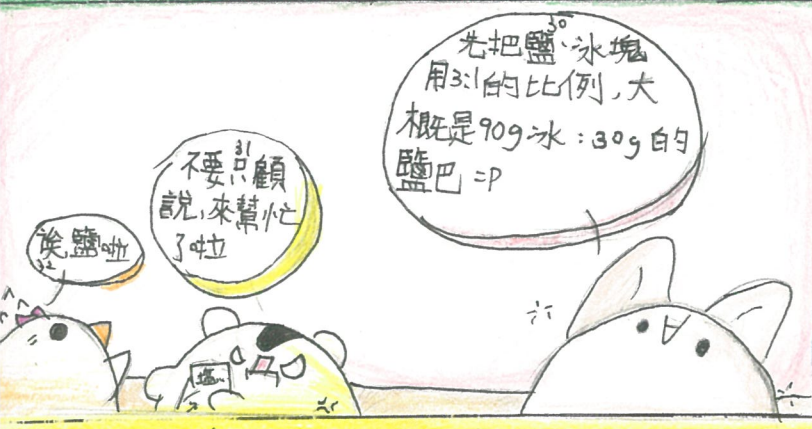 30
先把鹽、冰塊
用3:1的比例,大
概是90g冰:30g的
鹽巴=P
31
不要只顧
說,來幫忙
了啦
挨鹽啦
32
鹽